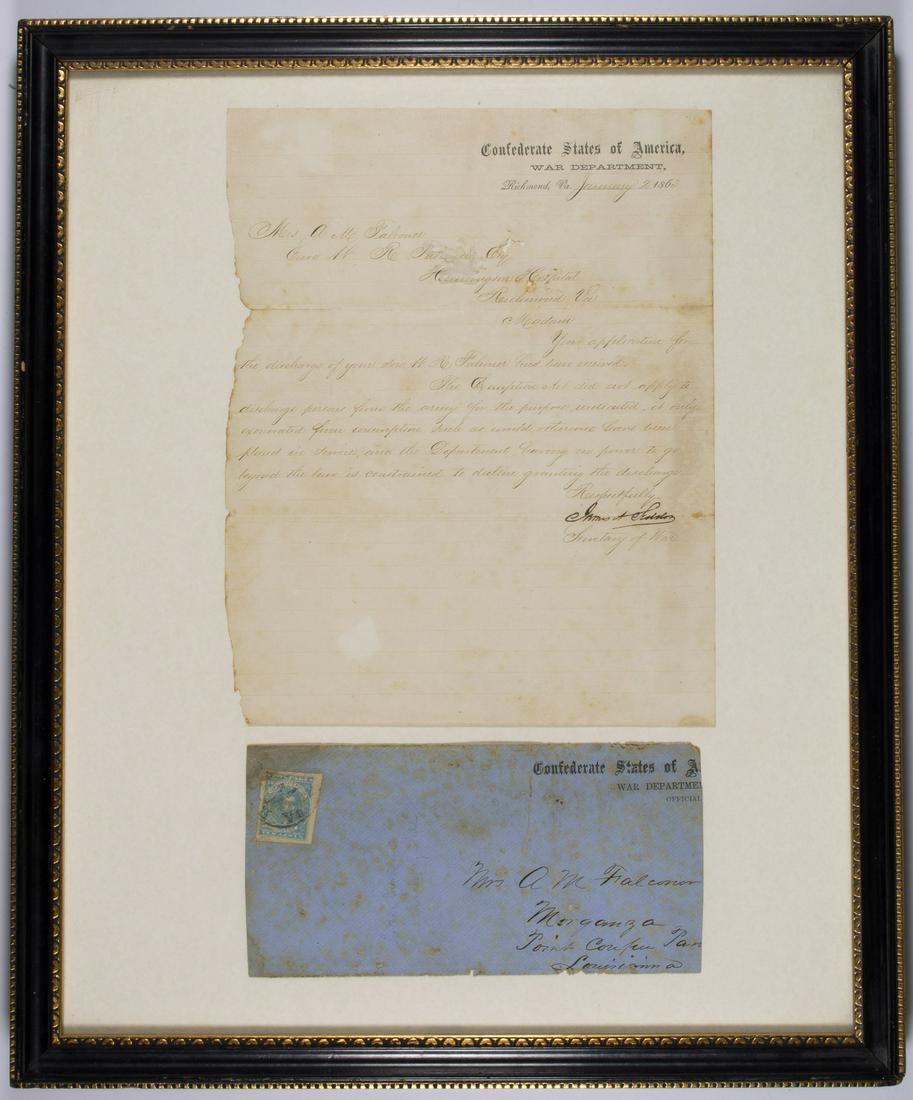 Confederate States of America,
WAR DEPARTMENT,
Richmond, Va. January 2 1863
Mrs A M Falconer
Care W R Esq
Hospital
Richmond Va
Madam
Your application for
the discharge of your son W R Falconer has been received.
The Exemption Act did not apply to
discharge persons from the army for the purpose indicated, it only
exonerated from conscription such as would otherwise have been
placed in service, and the Department having no power to go
beyond the law is constrained to decline granting the discharge.
Respectfully
James A Seddon
Secretary of War
Confederate States of A
WAR DEPARTME
OFFICIAL
Mrs A M Falconor
Morganza
Point Coupee Par
Louisianna